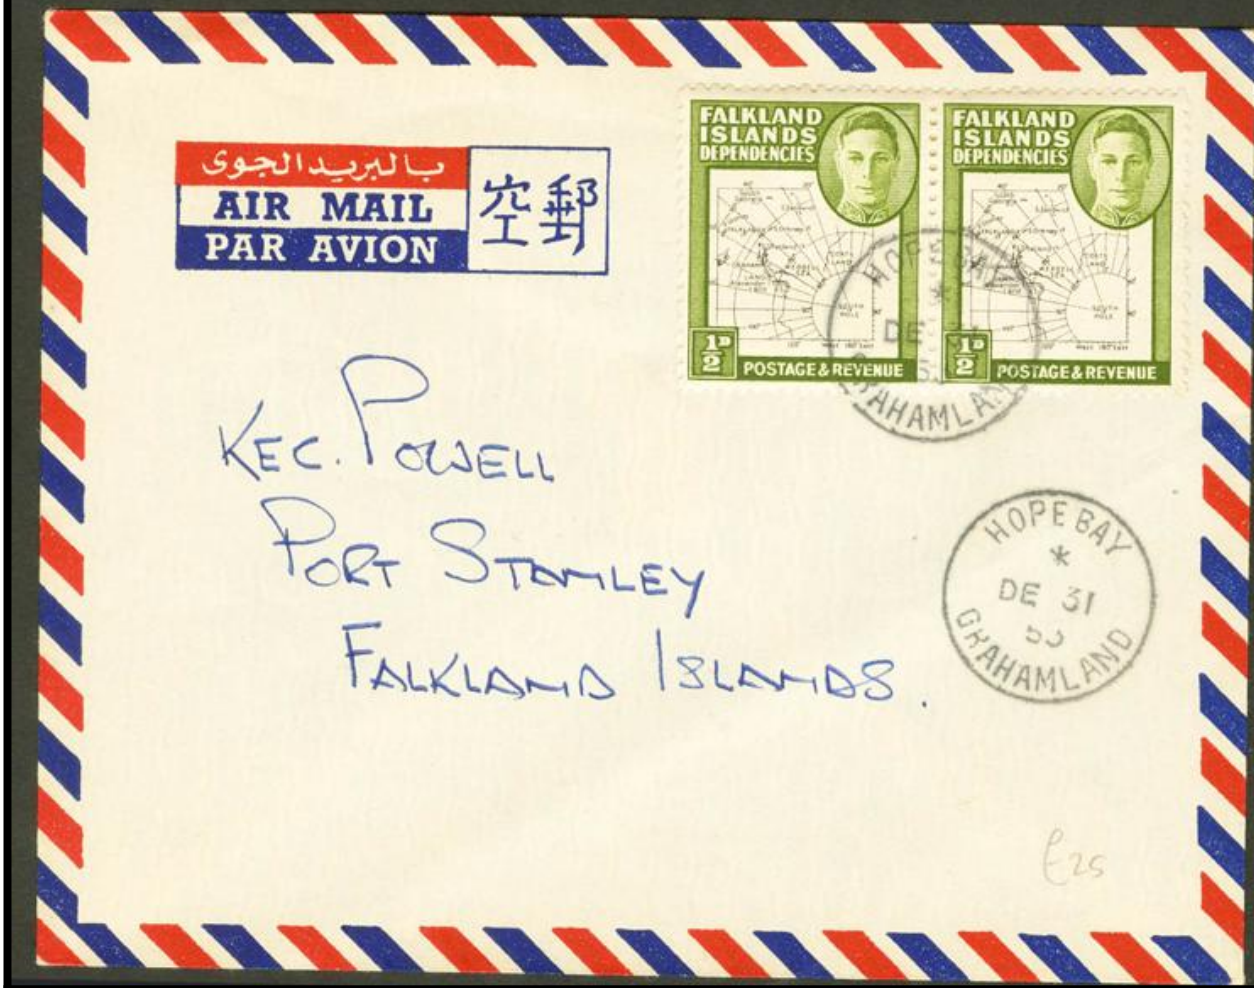 بالبريد الجوى
AIR MAIL
PAR AVION
空郵
FALKLAND
ISLANDS
DEPENDENCIES
SOUTH
POLE
½D
POSTAGE & REVENUE
FALKLAND
ISLANDS
DEPENDENCIES
COATS
LAND
WEDDELL
SEA
SOUTH
POLE
½D
POSTAGE & REVENUE
HOPE BAY
*
DE
GRAHAMLAND
KEC. POWELL
PORT STANLEY
FALKLAND ISLANDS.
HOPE BAY
*
DE 31
GRAHAMLAND
£25